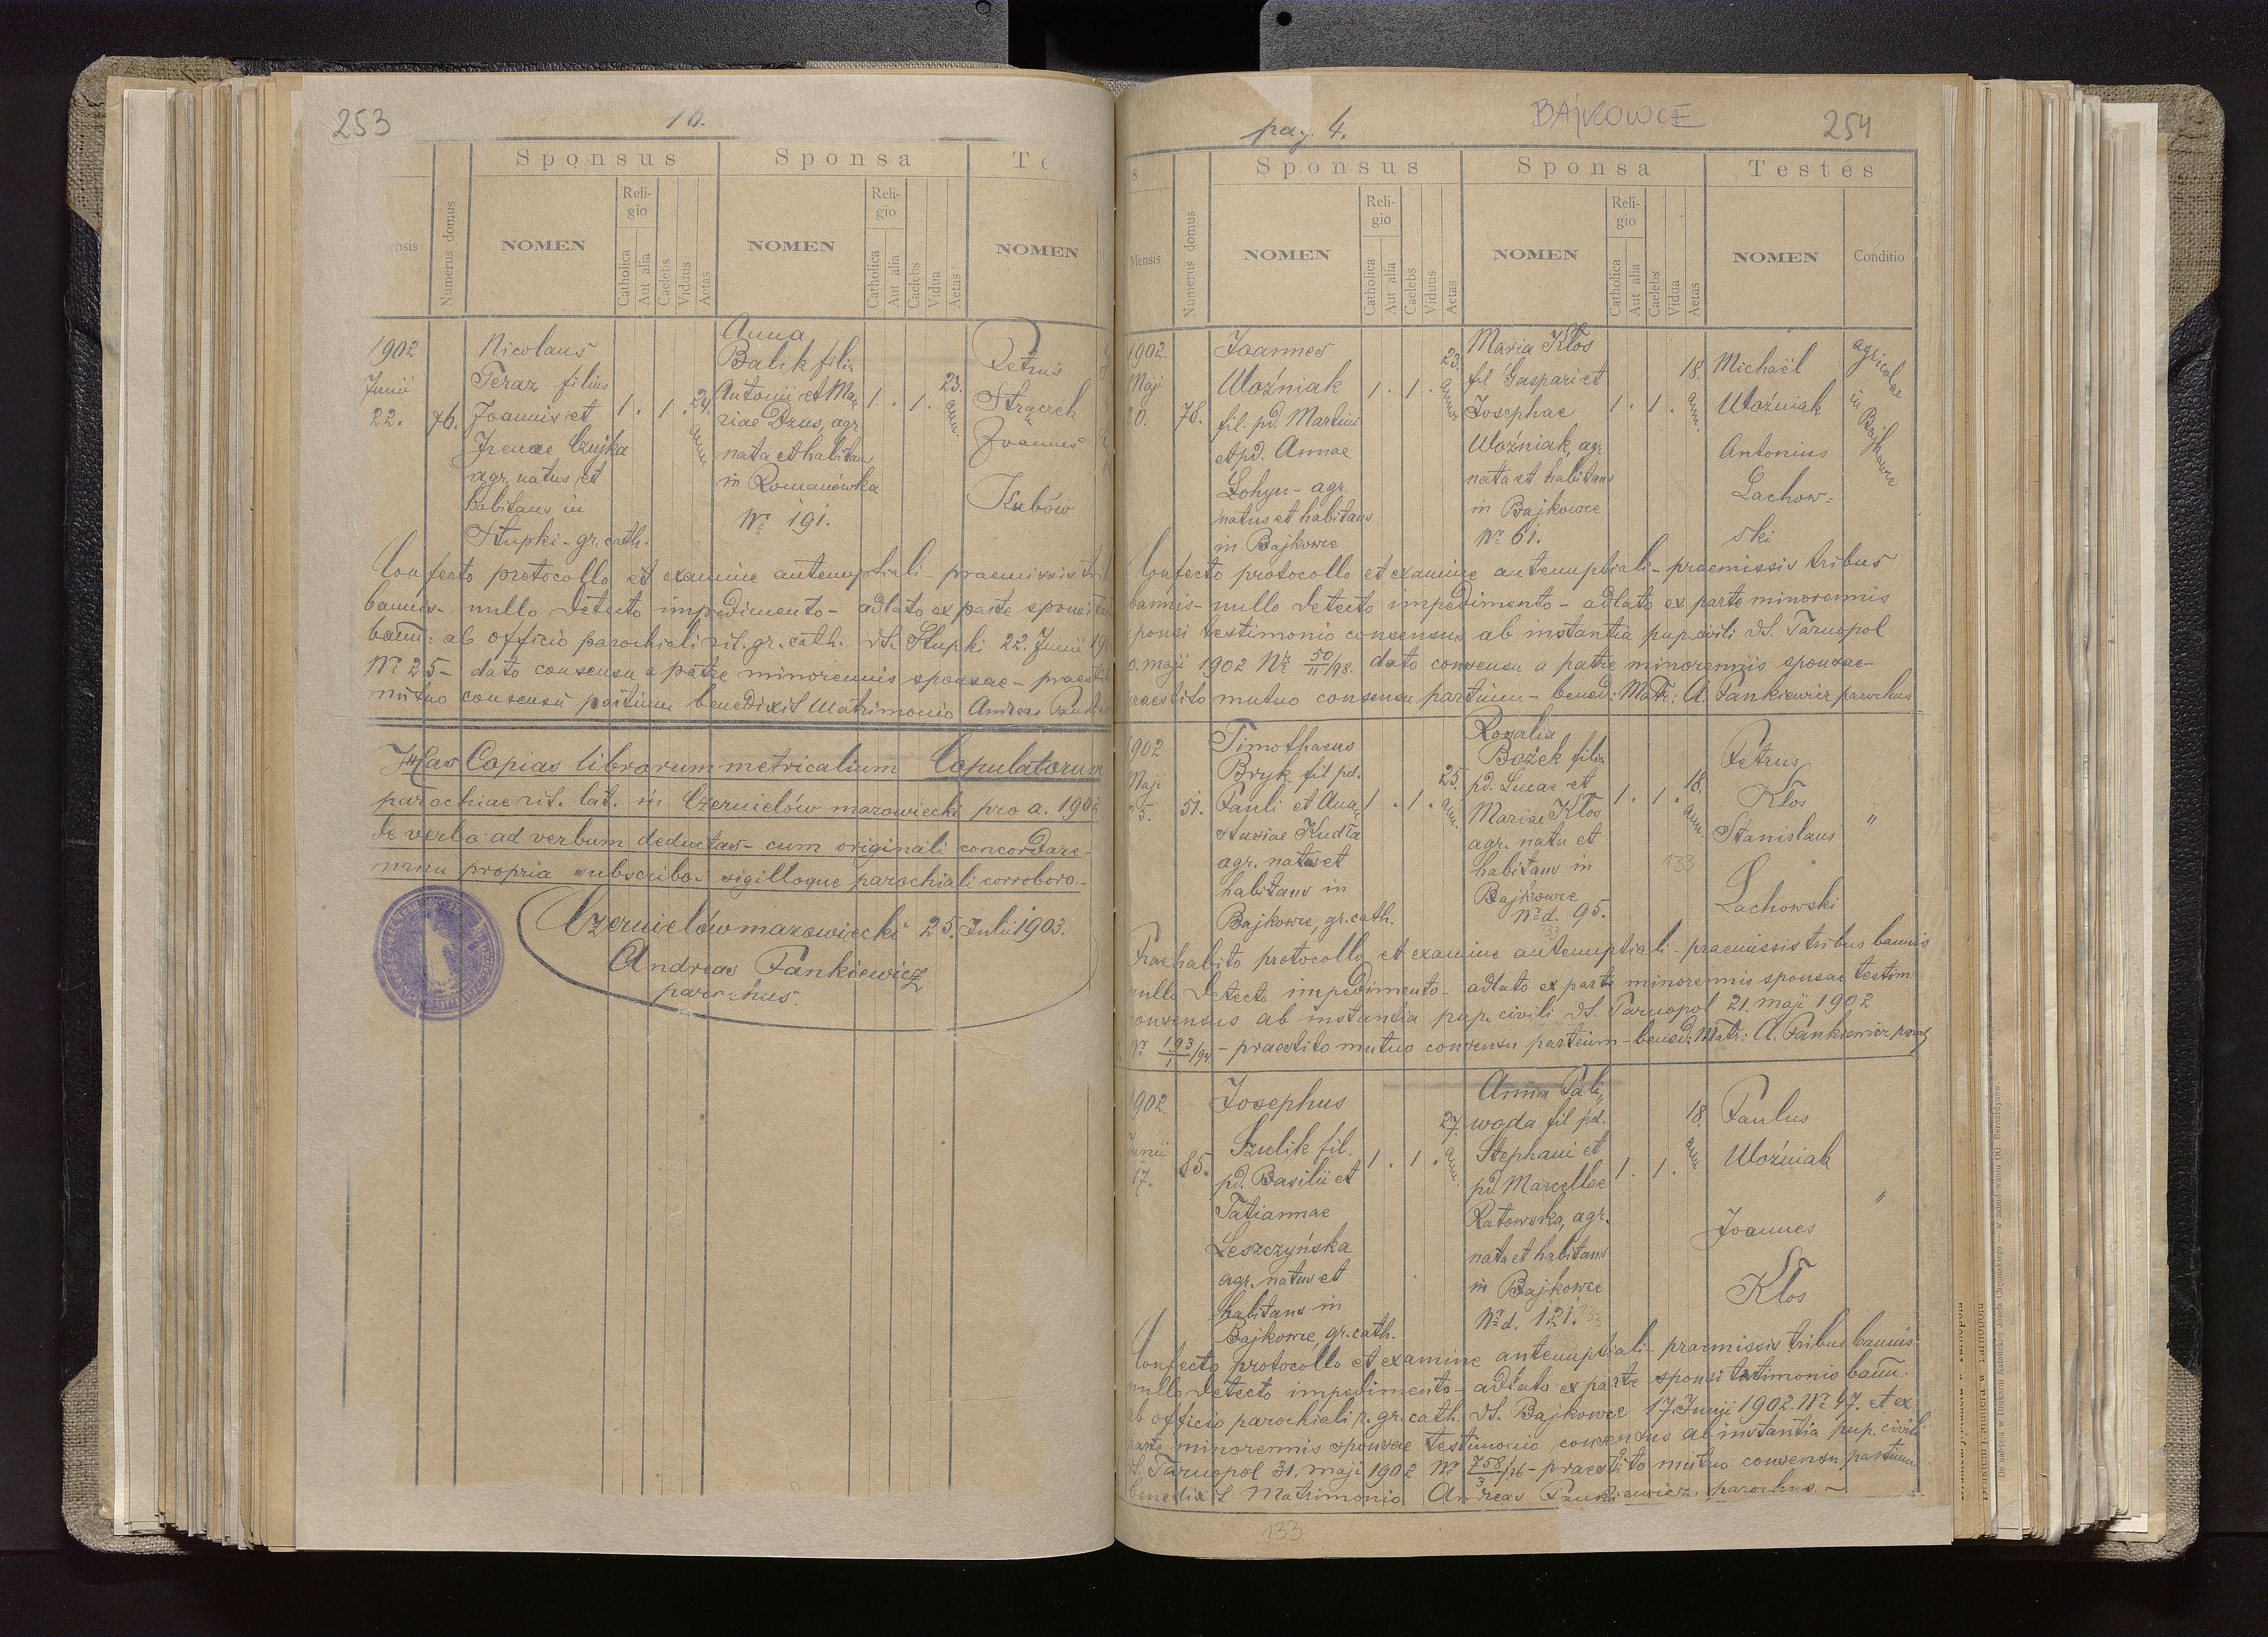 253
10.
Sponsus Sponsa Te
Numerus domus
NOMEN
Religio
Catholica
Aut alia
Caelebs
Viduus
Aetas
NOMEN
Religio
Catholica
Aut alia
Caelebs
Vidua
Aetas
NOMEN
1902
Junii
22.
76.
Nicolaus
Teraz filius
Joannis et
Irenae Czujka
agr. natus et
habitans in
Stupki - gr. cath.
1. 1.
24.
ann.
Anna
Balik filia
Antonii et Ma
riae Dzus, agr.
nata et habitans
in Romanówka
Nr 191.
1. 1.
23.
ann.
Petrus
Joannes
Kubów
Confecto protocollo et examine antenuptiali - praemissis tri
bannis - nullo detecto impedimento - adlato ex parte sponsi
bann: ab officio parochiali rit. gr. cath. dt. Stupki 22. Junii 190
Nr 25 - dato consensu a patre minorennis sponsae - praesti
mutuo consensu partium benedixit Matrimonio Andreas
Has Copias librorum metricalium Copulatorum
parochiae rit. lat. in Czernielów mazowiecki pro a. 1902
de verbo ad verbum deductas - cum originali concordare -
manu propria subscribo - sigilloque parochiali corroboro. -
Czernielów mazowiecki 25. Julii 1903.
Andreas Pankiewicz
parochus.
pag. 4.
BAJKOWCE
254
Sponsus Sponsa Testes
Mensis
Numerus domus
NOMEN
Religio
Catholica
Aut alia
Caelebs
Viduus
Aetas
NOMEN
Religio
Catholica
Aut alia
Caelebs
Vidua
Aetas
NOMEN
Conditio
1902.
Maji
20.
78.
Joannes
Woźniak
fil. pd. Martini
et pd. Annae
Łohyn - agr.
natus et habitans
in Bajkowce
1. 1.
23.
Maria Kłos
fil Gaspari et
Josephae
Woźniak, agr.
nata et habitans
in Bajkowce
Nr 61.
1. 1.
18.
ann.
Michaël
Woźniak
Antonius
Lachow=
ski
agricolae
in
Bajkowce
Confecto protocollo et examine antenuptiali - praemissis tribus
bannis - nullo detecto impedimento - adlato ex parte minorennis
sponsi testimonio consensus ab instantia pup. civili dt. Tarnopol
0. maji 1902 Nr 50/II/98. dato consensu a patre minorennis sponsae -
praestito mutuo consensu partium - bened: Matr: A. Pankiewicz parochus
1902
Maji
25.
51.
Timothaeus
Bryk fil pd.
Pauli et Ana
stasiae Kudła
agr. natus et
habitans in
Bajkowce, gr. cath.
1. 1.
25.
ann.
Rozalia
Bożek filia
pd. Lucae et
Mariae Kłos
agr. nata et
habitans in
Bajkowce
Nr d. 95.
1. 1.
18.
ann.
Petrus
Kłos
Stanislaus
Lachowski
"
133
Praehabito protocollo et examine antenuptiali - praemissis tribus bannis
nullo detecto impedimento - adlato ex parte minorennis sponsae testim.
consensus ab instantia pup. civili dt. Tarnopol 21. maji 1902
Nr 193/1/94 - praestito mutuo consensu partium - bened: Matr: A. Pankiewicz paroch
1902.
Junii
17.
85.
Josephus
Szulik fil.
pd. Basilii et
Tatiannae
Leszczyńska
agr. natus et
habitans in
Bajkowce, gr. cath.
1. 1.
27.
ann.
Anna Pali,
woda fil pd.
Stephani et
pd. Marcellae
Ratowska, agr.
nata et habitans
in Bajkowce
Nr d. 121.
1. 1.
18.
ann.
Paulus
Woźniak
Joannes
Kłos
"
133
Confecto protocollo et examine antenuptiali - praemissis tribus bannis
nullo detecto impedimento - adlato ex parte sponsi testimonio bann.
ab officio parochiali r. gr. cath. dt. Bajkowce 17. Junii 1902. Nr 47. et ex
parte minorennis sponsae testimonio consensus ab instantia pup. civili
dt. Tarnopol 31. maji 1902 Nr 758/3/16 - praestito mutuo consensu partium
benedixit Matrimonio Andreas Pankiewicz parochus -
133